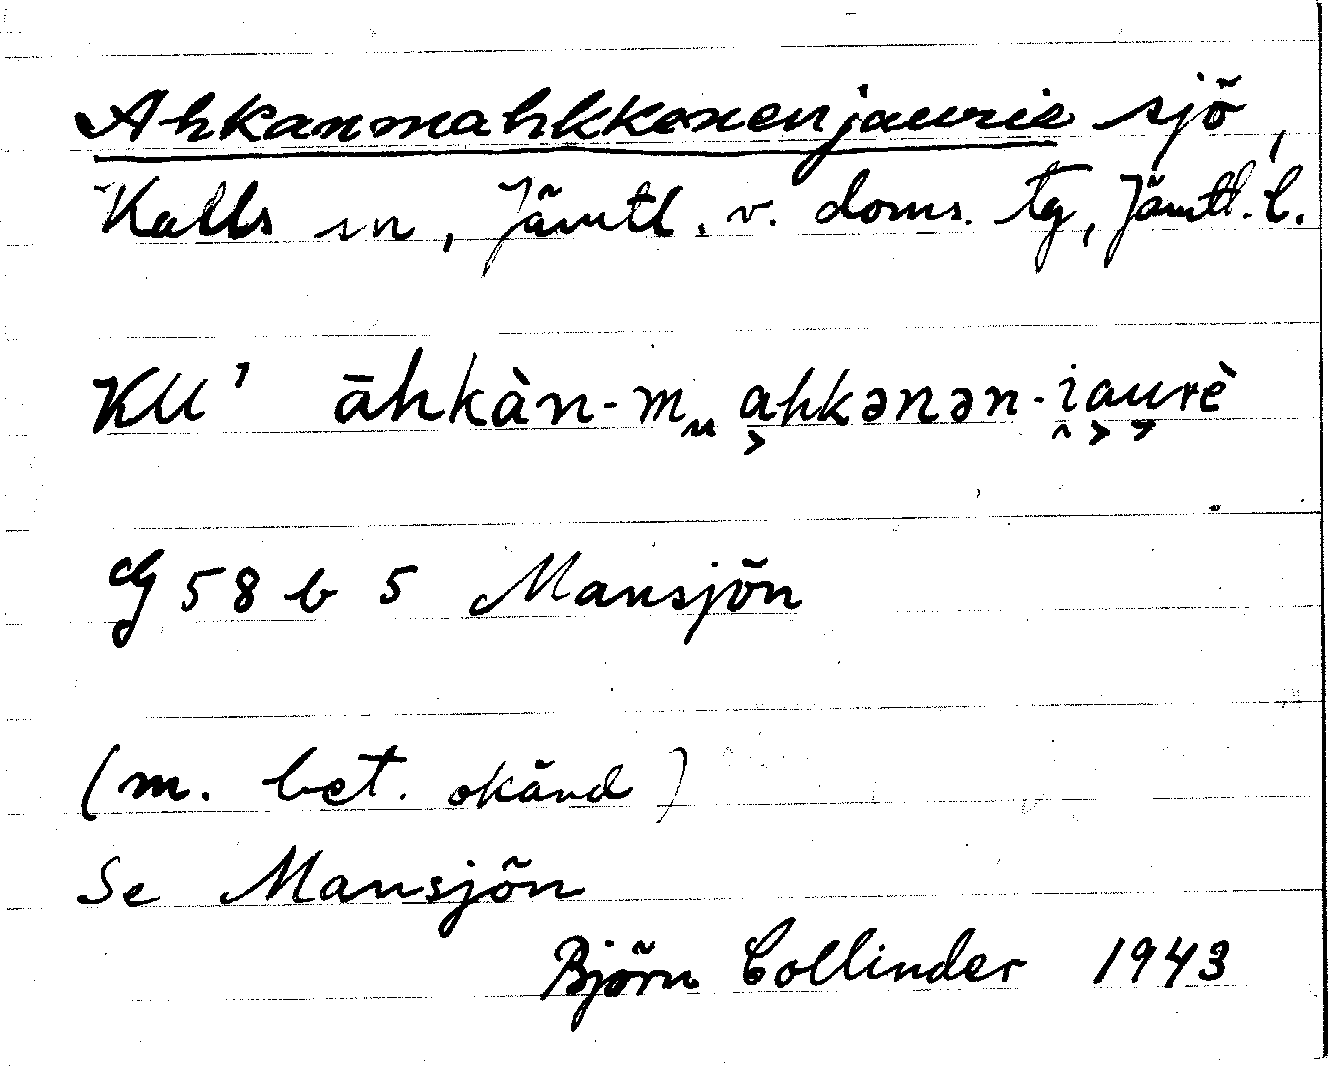 Ahkanmahkkenenjaurie sjö,
Kalls sn, Jämtl. v. doms. tg, Jämtl. l.
KU' āhkàn-mᵤa̱hkənən-i̯au̯rè
G 58 b 5 Mansjön
(m. bet. okänd)
Se Mansjön
Björn Collinder 1943